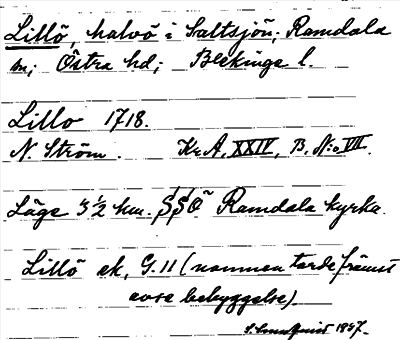 Lillö, halvö i Saltsjön; Ramdala
sn; Östra hd; Blekinge l.
Lillo 1718.
N. Ström. Kr. A. XXIV, B, N:o VII.
Läge 3 ½ km. SSO Ramdala kyrka.
Lillö ek, G. 11 (namnen torde främst
avse bebyggelse).